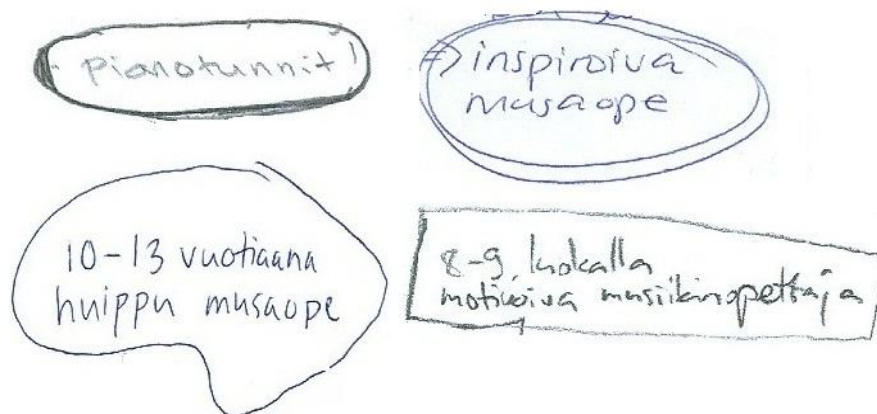 pianotunnit
=> inspiroiva
musaope
10-13 vuotiaana
huippu musaope
8-9. luokalla
motivoiva musiikinopettaja